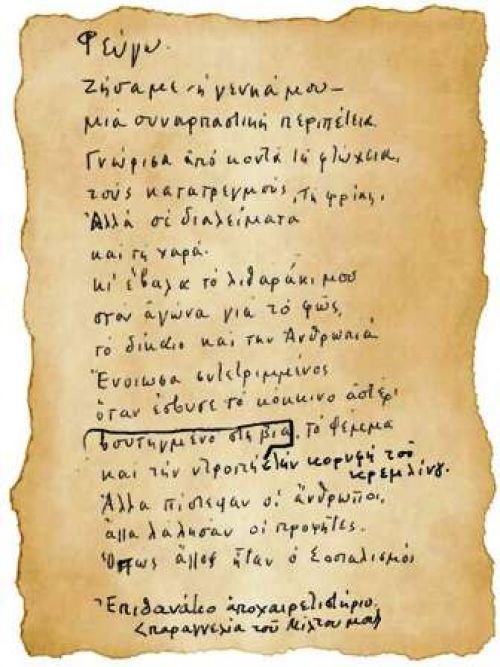 Φεύγω.
Ζήσαμε -ἡ γενιά μου-
μιά συναρπαστική περιπέτεια.
Γνώρισα ἀπό κοντά τή φτώχεια,
τούς κατατρεγμούς, τή φρίκη,
Ἀλλά σέ διαλείματα
καί τή χαρά.
κι' ἔβαλα τό λιθαράκι μου
στόν ἀγώνα γιά τό φῶς,
τό δίκαιο καί τήν Ἀνθρωπιά
Ἔνοιωσα συντετριμμένος
ὅταν ἔσβυσε τό κόκκινο ἀστέρι
βουτηγμένο στή βία, τό ψέμμα
καί τήν ντροπή στήν κορυφή τοῦ
κρεμλίνου.
Ἄλλα πίστεψαν οἱ ἄνθρωποι,
ἄλλα λάλησαν οἱ προφῆτες.
Ὅπως ἄλλος ἦταν ὁ Σοσιαλισμός
Ἐπιθανάτιο ἀποχαιρετιστήριο.
παραγγελία τοῦ Μίλτου μας